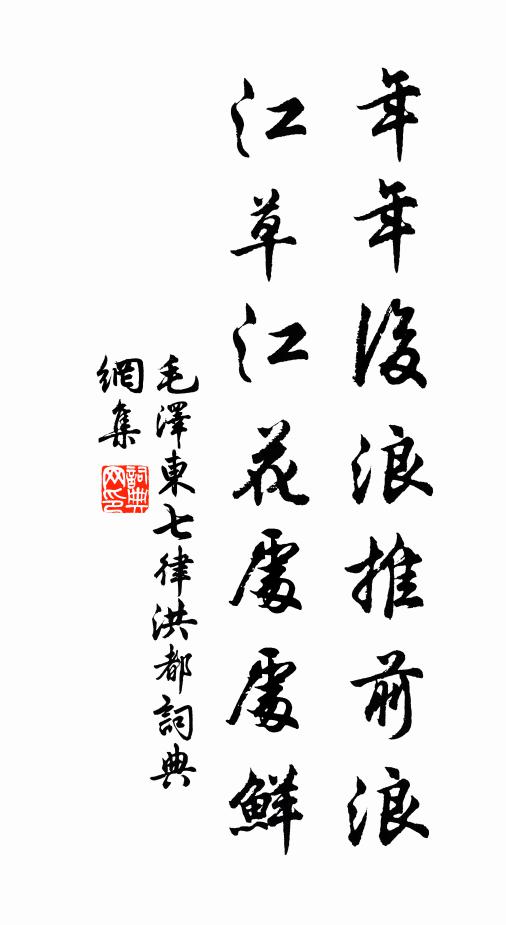 年年後浪推前浪
江草江花處處鮮
毛澤東七律洪都詞典
網集
詞典
网印